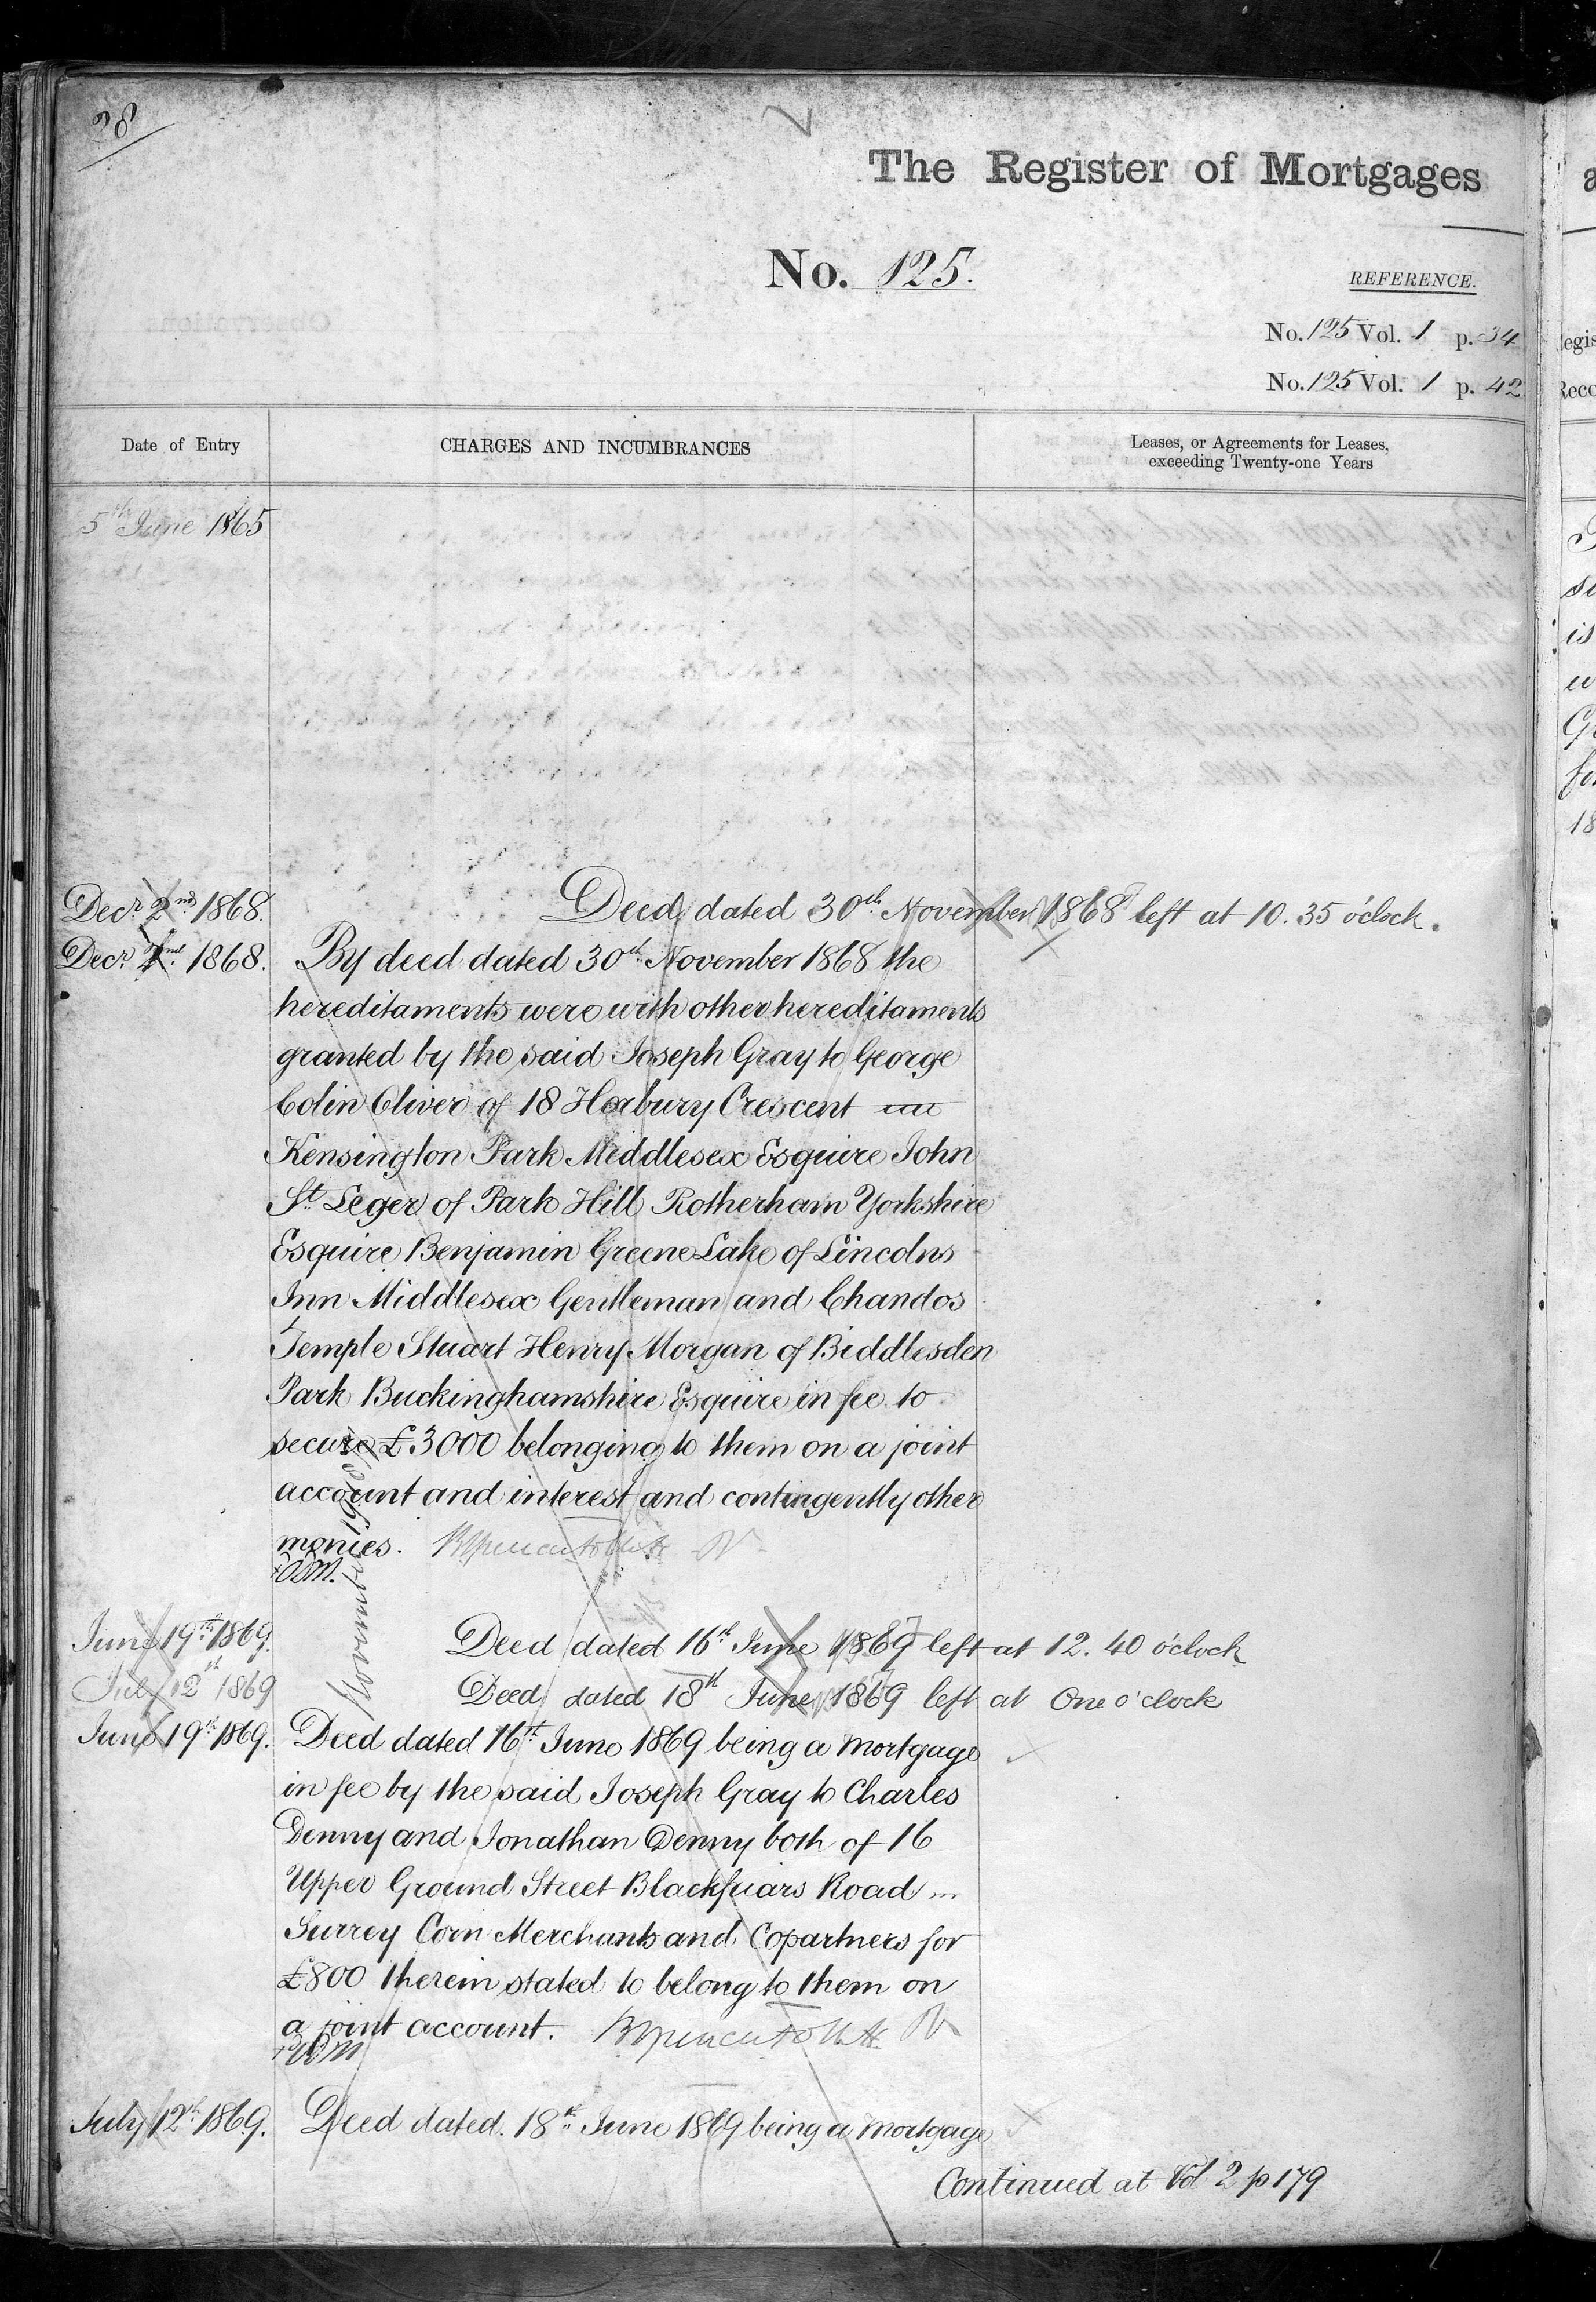 38
2
The Register of Mortgages
No. 125.
REFERENCE.
No. 125 Vol. 1 p. 34
No. 125 Vol. 1 p. 42
Date of Entry
CHARGES AND INCUMBRANCES
Leases, or Agreements for Leases,
exceeding Twenty-one Years
5th June 1865
Decr. 2nd 1868. Deed dated 30th November 1868 left at 10.35 o'clock.
Decr. 2nd 1868. By deed dated 30th November 1868 the
hereditaments were with other hereditaments
granted by the said Joseph Gray to George
Colin Oliver of 18 Horbury Crescent
Kensington Park Middlesex Esquire John
St. Leger of Park Hill Rotherham Yorkshire
Esquire Benjamin Greene Lake of Lincolns
Inn Middlesex Gentleman and Chandos
Temple Stuart Henry Morgan of Biddlesden
Park Buckinghamshire Esquire in fee to
secure £3000 belonging to them on a joint
account and interest and contingently other
monies.
November
June 19th 1869. Deed dated 16th June 1869 left at 12.40 o'clock
July 12th 1869 Deed dated 18th June 1869 left at One o'clock
June 19th 1869. Deed dated 16th June 1869 being a mortgage
in fee by the said Joseph Gray to Charles
Denny and Jonathan Denny both of 16
Upper Ground Street Blackfriars Road
Surrey Corn Merchants and Copartners for
£800 therein stated to belong to them on
a joint account.
July 12th 1869. Deed dated. 18th June 1869 being a mortgage
Continued at Vol 2 p 179